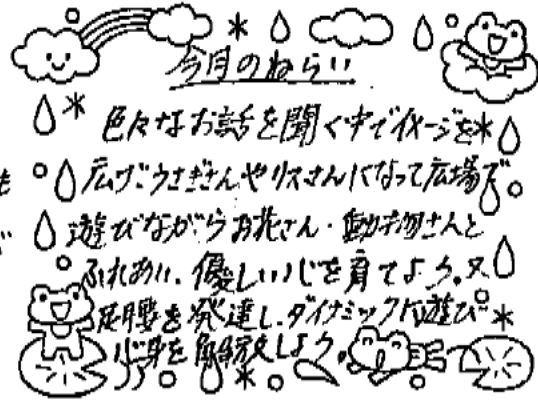 今月のねらい
色々なお話を聞く中でイメージを
広げ うさぎさんやリスさんになって広場で
遊びながらお花さん・動物さんと
ふれあい、優しい心を育てよう。又
足腰を発達し、ダイナミックに遊び
心身を解放しよう。
も
が